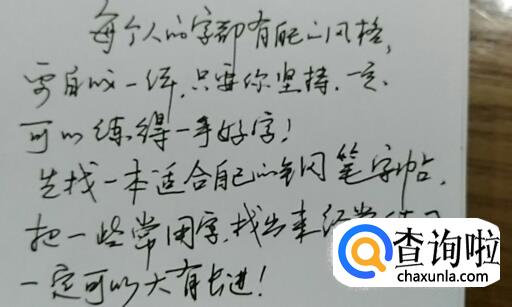 每个人的字都有自己的风格,
需自我一练,只要你坚持,一定
可以练得一手好字!
先找一本适合自己的钢笔字帖,
把一些常用字,找出来经常
一定可以大有长进!
查询啦
chaxunla.com